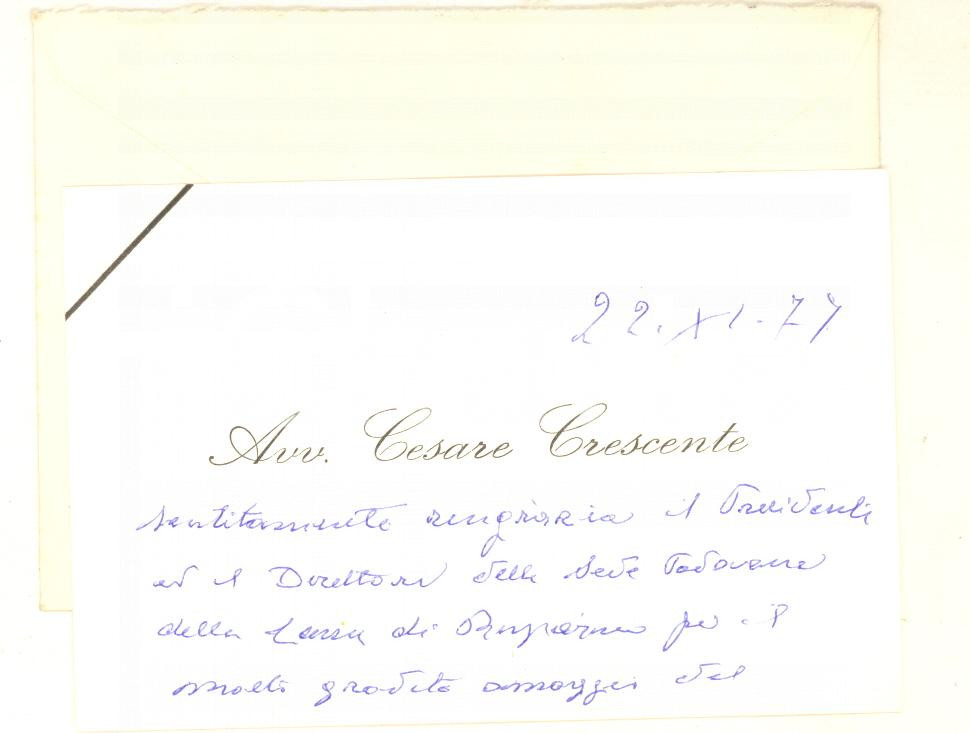 22.XI.77
Avv. Cesare Crescente
sentitamente ringrazia il Presidente
ed il Direttore della Sede Padovana
della Cassa di Risparmio per il
molto gradito omaggio del